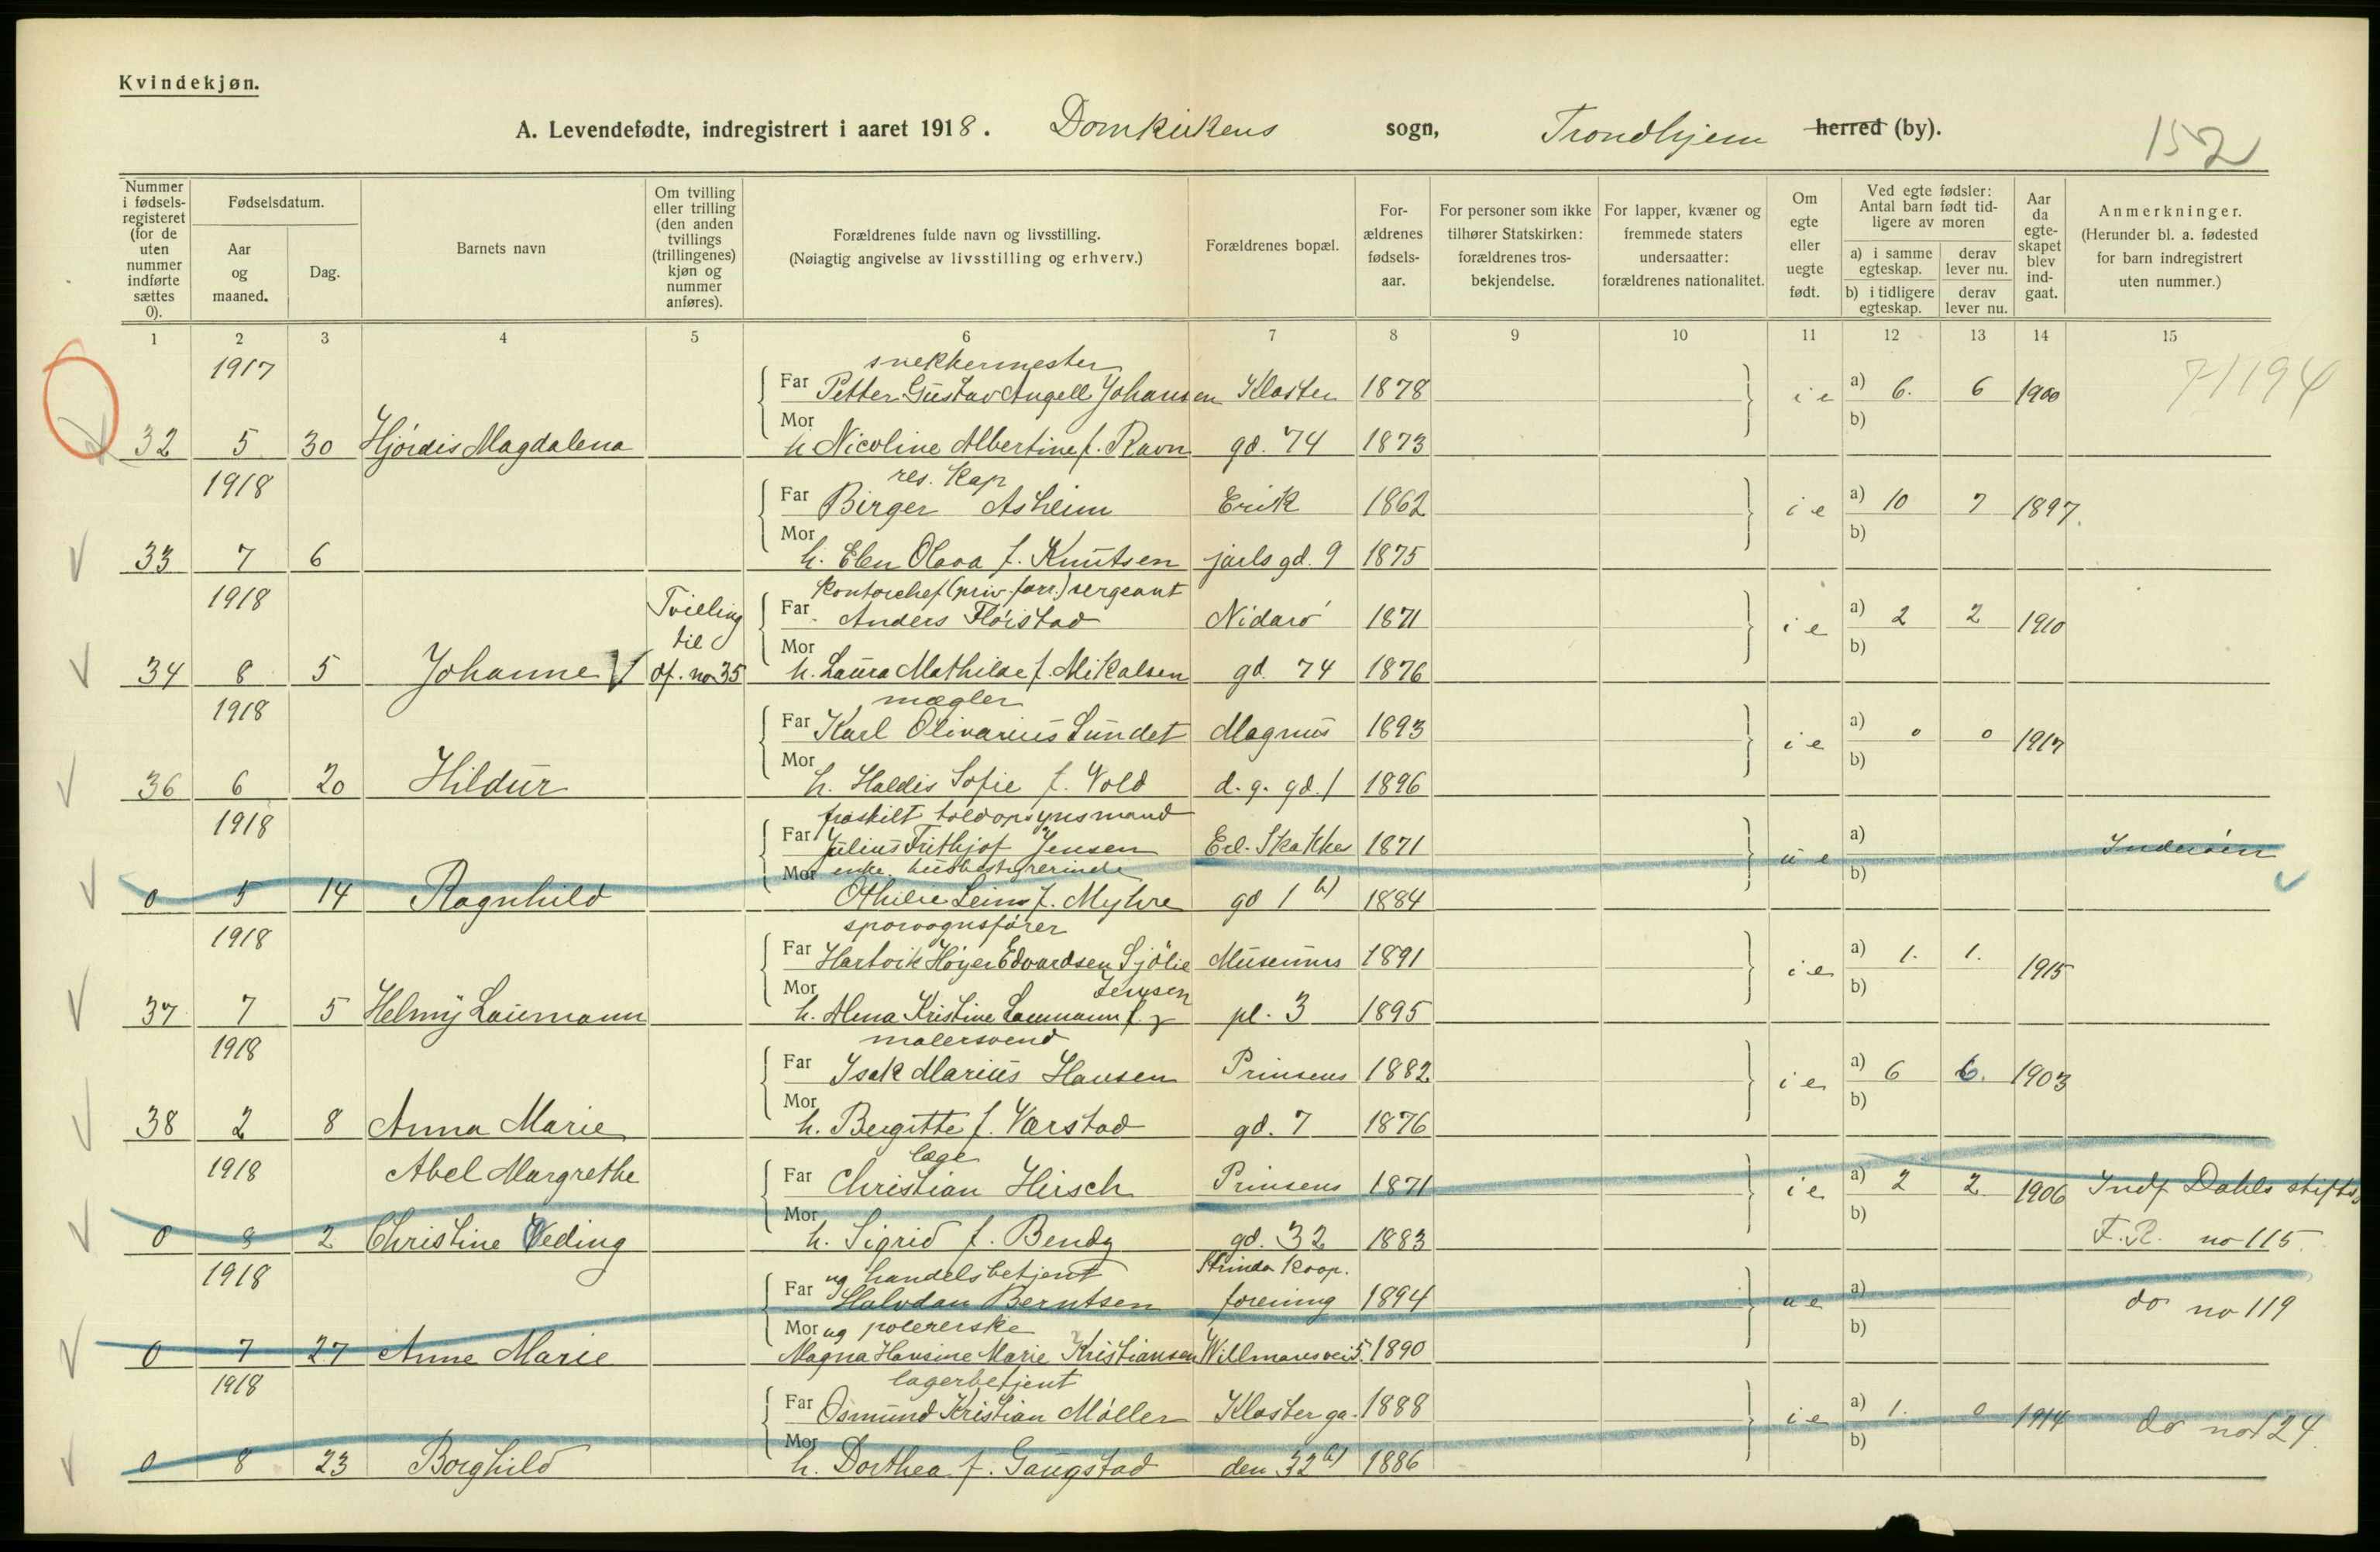 Kvindekjøn.
A. Levendefødte, indregistrert i aaret 1918. Domkirkens sogn, Trondhjem herred (by).
152
Nummer i fødsels-registeret (for de uten nummer indførte sættes 0).
Fødselsdatum.
Aar og maaned.
Dag.
Barnets navn
Om tvilling eller trilling (den anden tvillings (trillingenes) kjøn og nummer anføres).
Forældrenes fulde navn og livsstilling.
(Nøiagtig angivelse av livsstilling og erhverv.)
Forældrenes bopæl.
For-ældrenes fødsels-aar.
For personer som ikke tilhører Statskirken: forældrenes tros-bekjendelse.
For lapper, kvæner og fremmede staters undersaatter: forældrenes nationalitet.
Om egte eller uegte født.
Ved egte fødsler: Antal barn født tid-ligere av moren
a) i samme egteskap.
derav lever nu.
b) i tidligere egteskap.
derav lever nu.
Aar da egte-skapet blev ind-gaat.
Anmerkninger.
(Herunder bl. a. fødested for barn indregistrert uten nummer.)
1 2 3 4 5 6 7 8 9 10 11 12 13 14 15
1917 snekkermester
Far Petter Gustav Angell Johansen Kloster 1878 i e a) 6. 6 1900 71194
Mor b)
32 5 30 Hjördis Magdalena h Nicoline Albertine f. Ravn gd. 74 1873
1918 res. Kap
Far Birger Asheim Erik 1862 i e a) 10 7 1897.
Mor b)
33 7 6 h. Elen Olava f. Knutsen jarls gd. 9 1875
1918 Kontorchef (priv. forr.) sergeant
Tvilling Far Anders Flöistad Nidarö 1871 i e a) 2 2 1910
til Mor b)
34 8 5 Johanne df. no 35 h. Laura Mathilde f. Mikalsen gd. 74 1876
1918 mægler
Far Karl Olivarius Sundet Magnus 1893 i e a) 0 0 1917
Mor b)
36 6 20 Hildur h. Haldis Sofie f. Vold d. g. gd. 1 1896
1918 fraskilt toldopsynsmand
Far Julius Frithjof Jensen Erl. Skakkes 1871 u e a) Inderöen
Mor enke, husbestyrerinde b)
0 5 14 Ragnhild Othilie Leino f. Myhre gd 1 b) 1884
1918 sporvognsfører
Far Hartvik Höyer Edvardsen Sjölie Museums 1891 i e a) 1. 1. 1915
Mor Jensen b)
37 7 5 Helmy Laumann h. Alma Kristine Laumann f. pl. 3 1895
1918 malersvend
Far Isak Marius Hansen Prinsens 1882 i e a) 6 6. 1903
Mor b)
38 2 8 Anna Marie h. Bergitte f. Værstad gd. 7 1876
1918 Abel Margrethe læge
Far Christian Hirsch Prinsens 1871 i e a) 2 2 1906 Indf Dahls stifts.
Mor b)
0 8 2 Christine Oeding h. Sigrid f. Bendz gd. 32 1883 F. R. no 115.
1918 ug handelsbetjent Strinda Koop.
Far Halvdan Berntsen forening 1894 u e a) do no 119
Mor ug polererske b)
0 7 27 Anne Marie Magna Hansine Marie Kristiansen Willmannsvei 5. 1890
1918 lagerbetjent
Far Osmund Kristian Möller Kloster ga- 1888 i e a) 1. 0 1914 do no 124.
Mor b)
0 8 23 Borghild h. Dorthea f. Gaugstad den 32 b) 1886